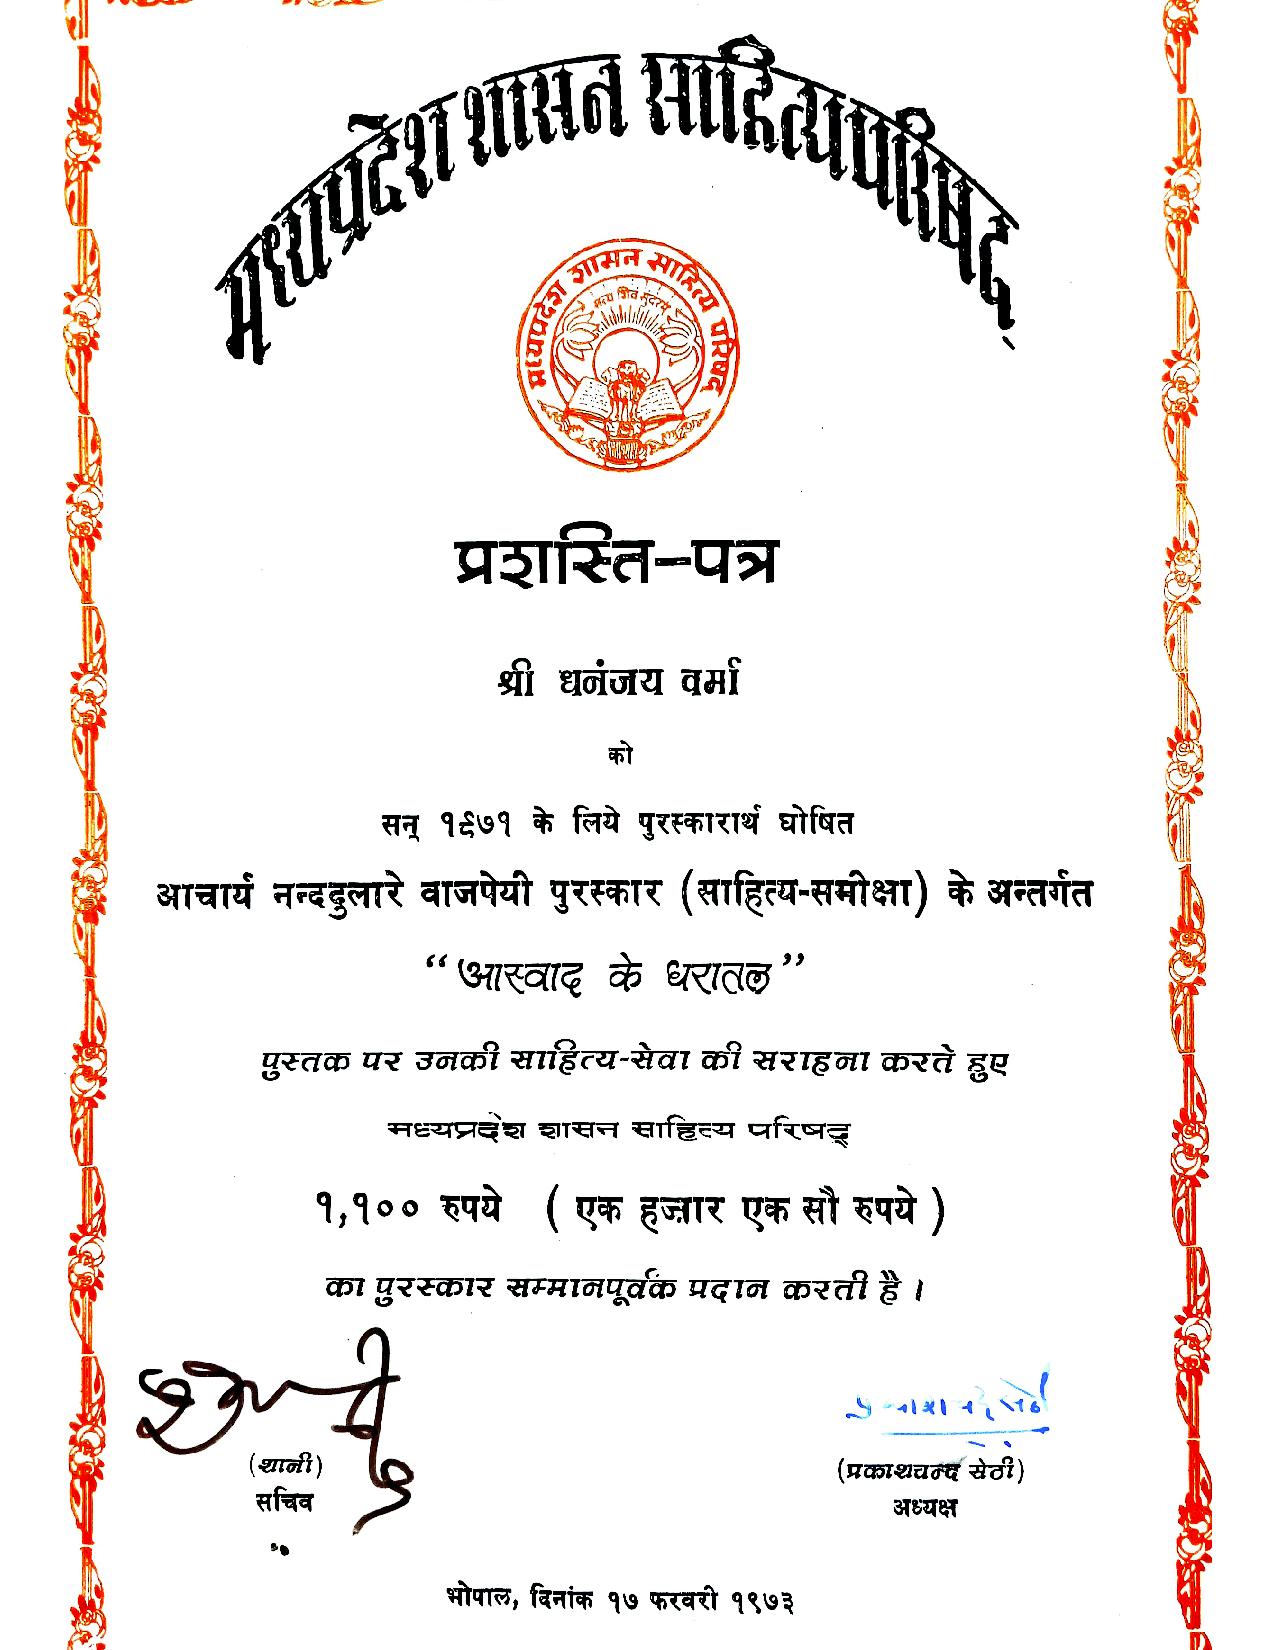 मध्यप्रदेश शासन साहित्य परिषद्
मध्यप्रदेश शासन साहित्य परिषद्
सत्य शिव सुन्दरम्
प्रशस्ति-पत्र
श्री धनंजय वर्मा
को
सन् १९७१ के लिये पुरस्कारार्थ घोषित
आचार्य नन्ददुलारे वाजपेयी पुरस्कार (साहित्य-समीक्षा) के अन्तर्गत
“आस्वाद के धरातल”
पुस्तक पर उनकी साहित्य-सेवा की सराहना करते हुए
मध्यप्रदेश शासन साहित्य परिषद्
१,१०० रुपये ( एक हज़ार एक सौ रुपये )
का पुरस्कार सम्मानपूर्वक प्रदान करती है ।
प्रकाशचन्द सेठी
(शानी)
सचिव
(प्रकाशचन्द सेठी)
अध्यक्ष
भोपाल, दिनांक १७ फरवरी १९७३